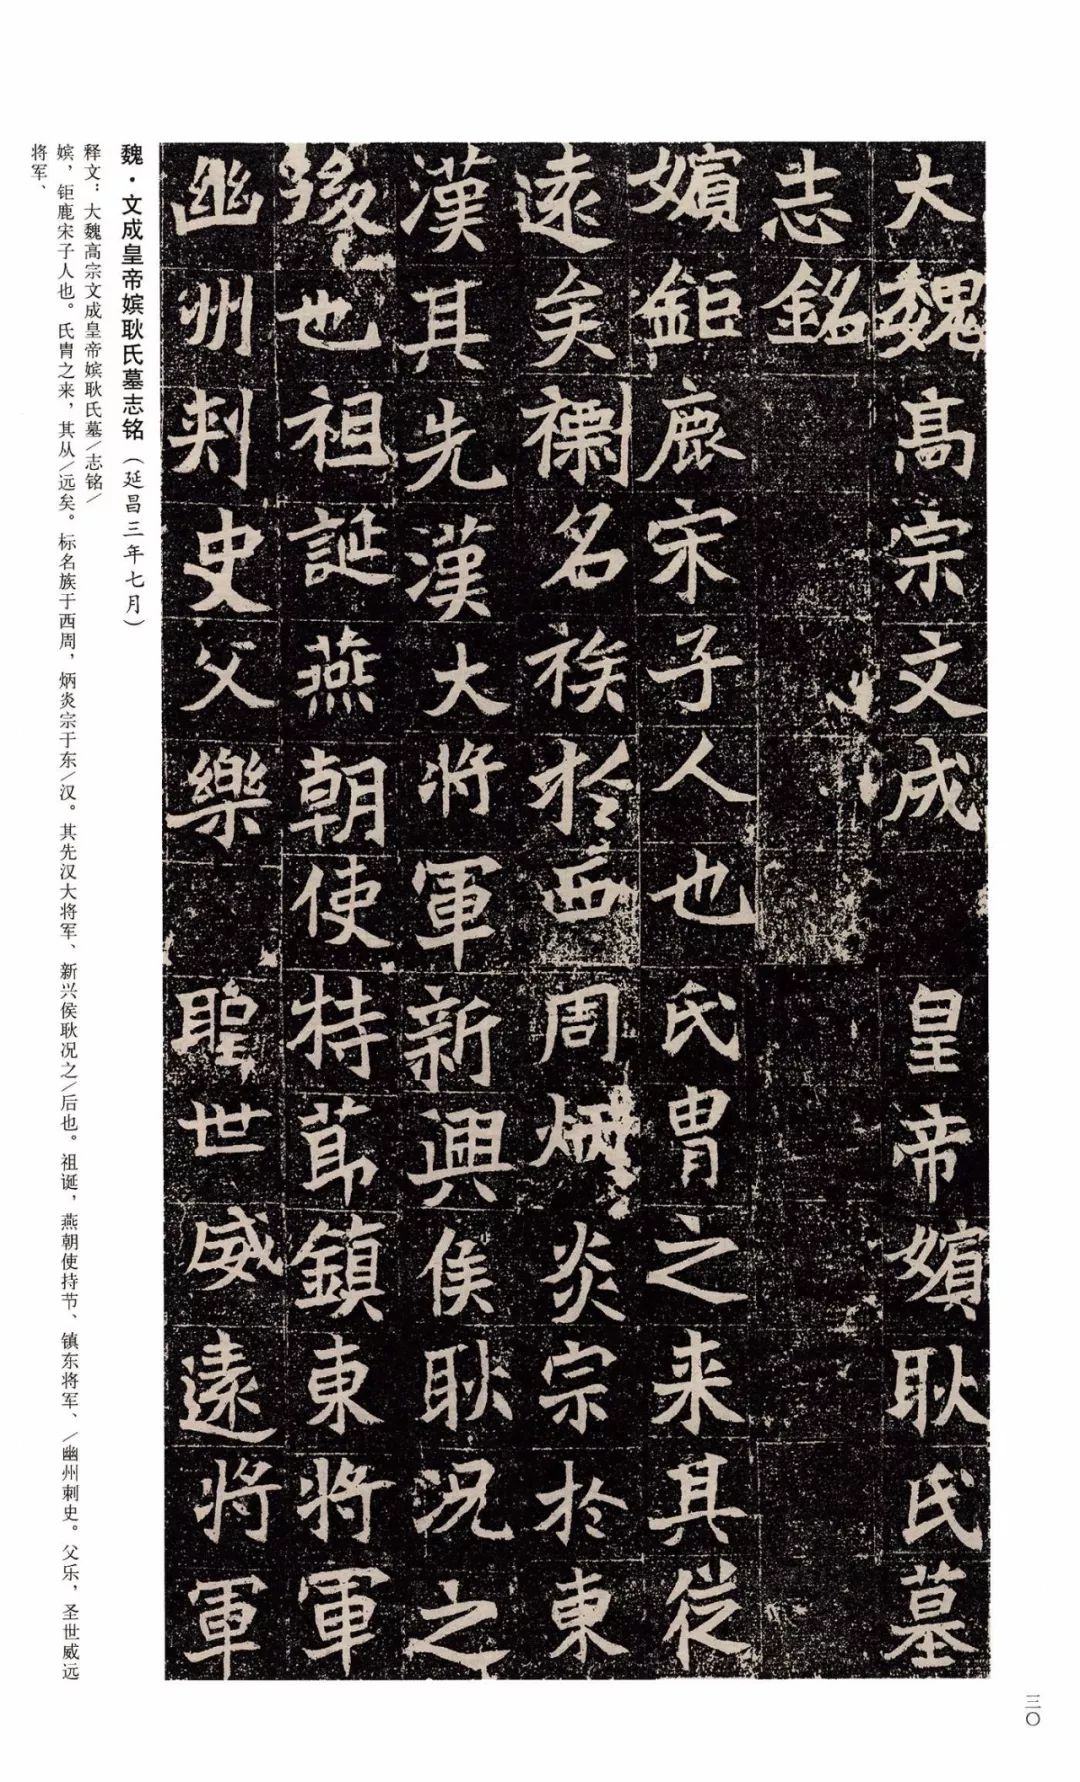 大魏髙宗文成皇帝嬪耿氏墓
志銘
嬪鉅鹿宋子人也氏胄之来其従
逺矣標名族於西周炳炎宗於東
漢其先漢大将軍新興侯耿况之
後也祖誕燕朝使持節鎮東将軍
幽州刺史父樂聖世威遠将軍
魏·文成皇帝嫔耿氏墓志铭（延昌三年七月）
释文：大魏高宗文成皇帝嫔耿氏墓/志铭/
嫔，钜鹿宋子人也。氏胄之来，其从/远矣。标名族于西周，炳炎宗于东/汉。其先汉大将军、新兴侯耿况之/后也。祖诞，燕朝使持节、镇东将军、/幽州刺史。父乐，圣世威远
将军、
三〇